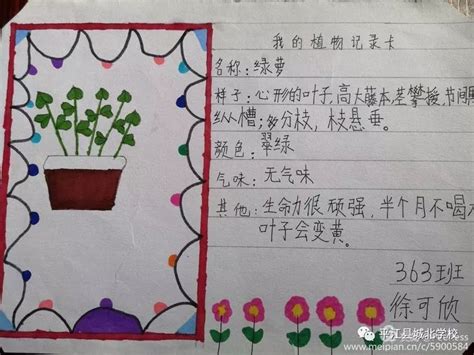 我的植物记录卡
名称:绿萝
样子:心形的叶子,高大藤本茎攀援,节间
纵槽;多分枝,枝悬垂。
颜色:翠绿
气味:无气味
其他:生命力很顽强,半个月不喝
叶子会变黄。
363班
徐可欣
平江县城北学校
www.meipian.cn/c/5900584